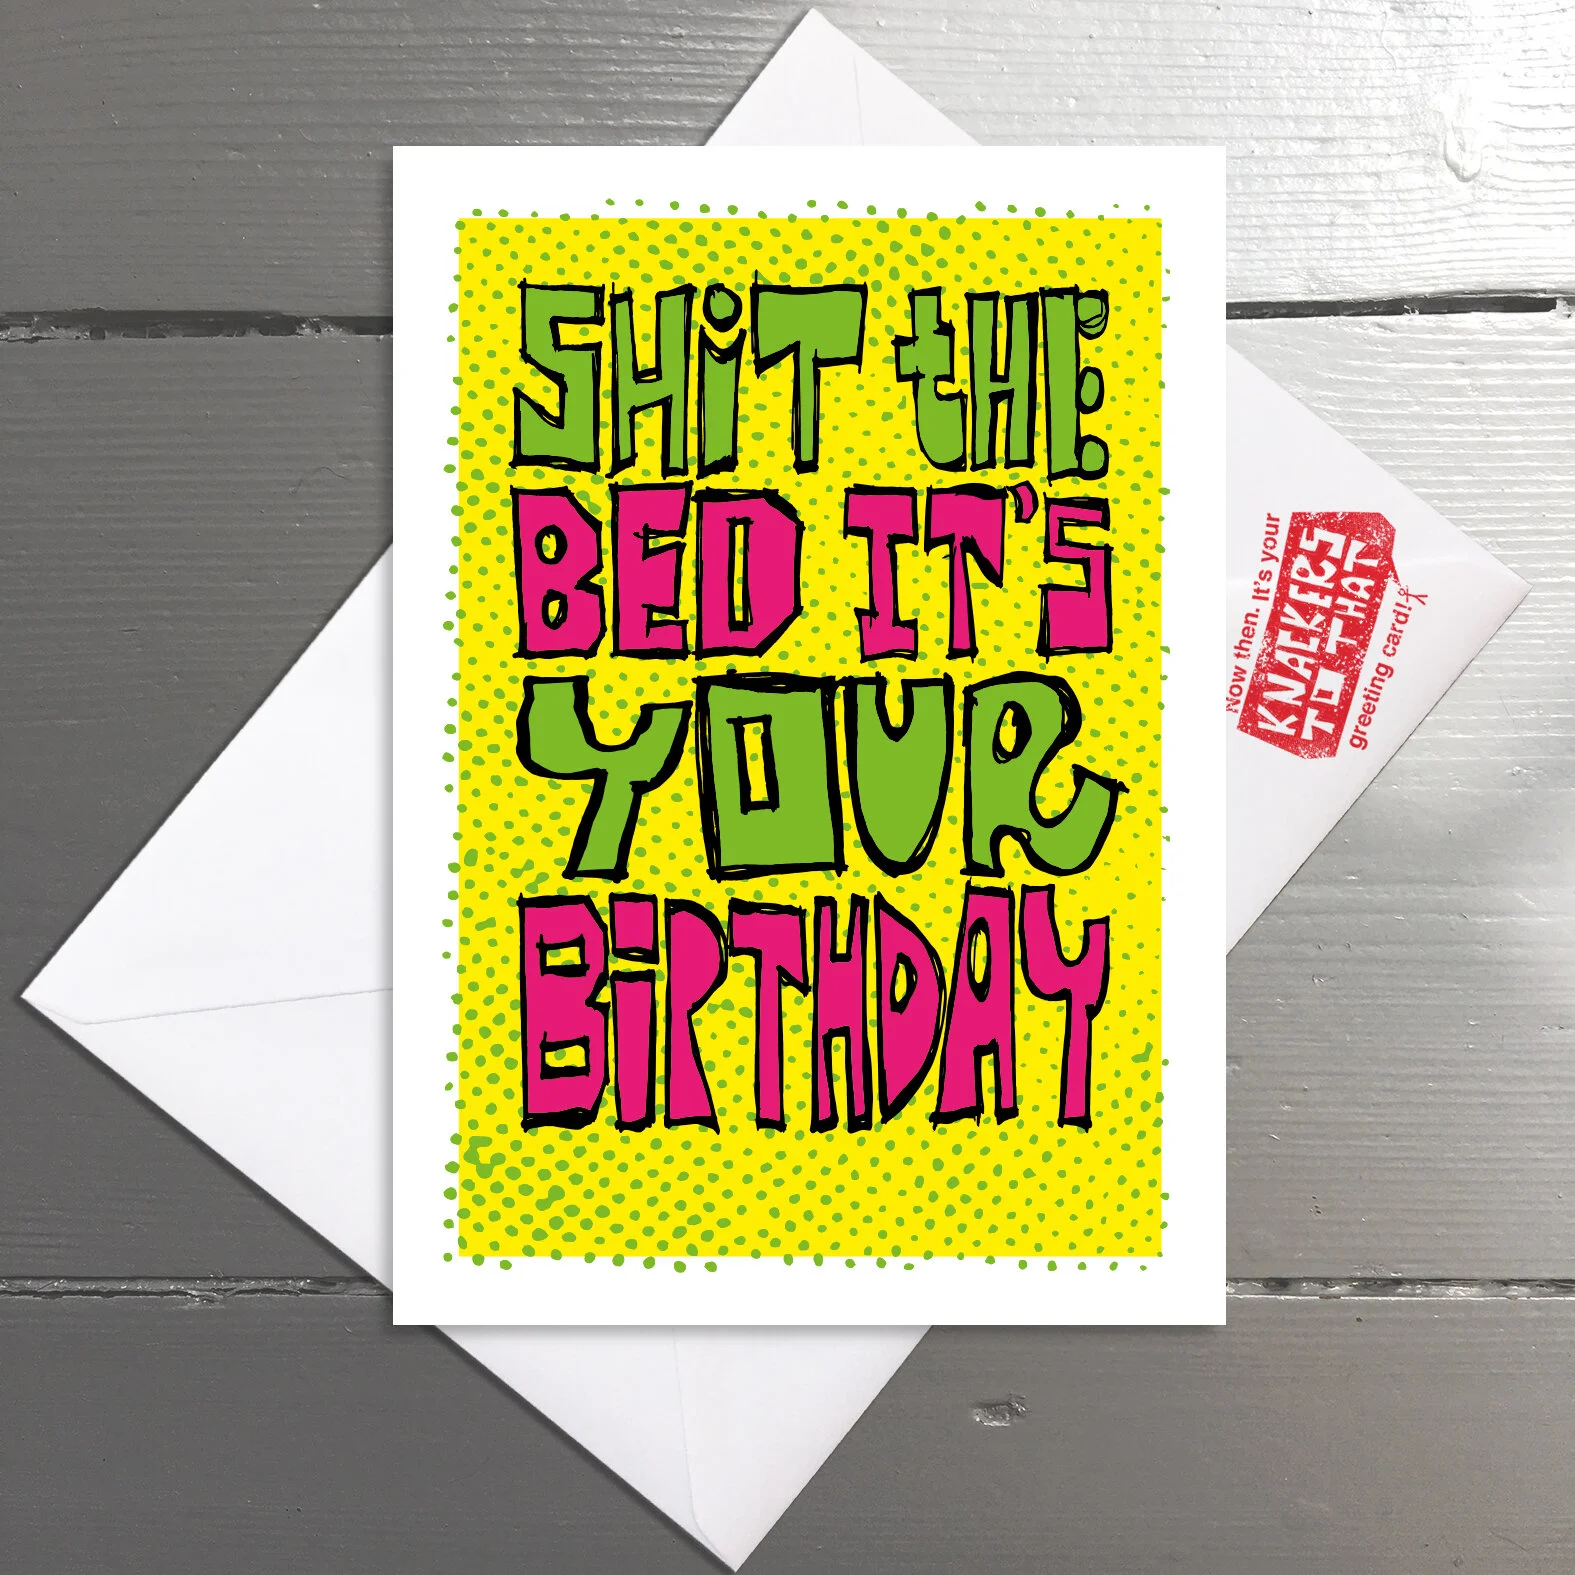 SHiT tHE
BED IT'S
YOUR
BiRTHDAY
Now then. It's your
KNACKERS
TO THAT
greeting card!